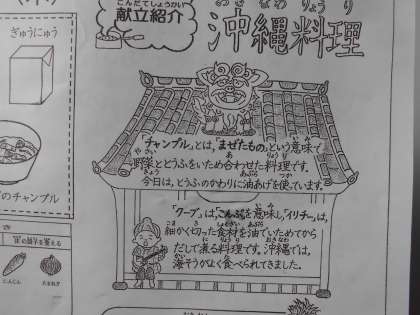 献立紹介
沖縄料理
ぎゅうにゅう
「チャンプル」とは、「まぜたもの」という意味で
野菜ととうふをいため合わせた料理です。
今日は、とうふのかわりに油あげを使っています。
「クーブ」は、こんぶを意味し「イリチー」は、
細かく切った食材を油でいためてから
だしで煮る料理です。沖縄では、
海そうがよく食べられてきました。
のチャンプル
にんじん
たまねぎ